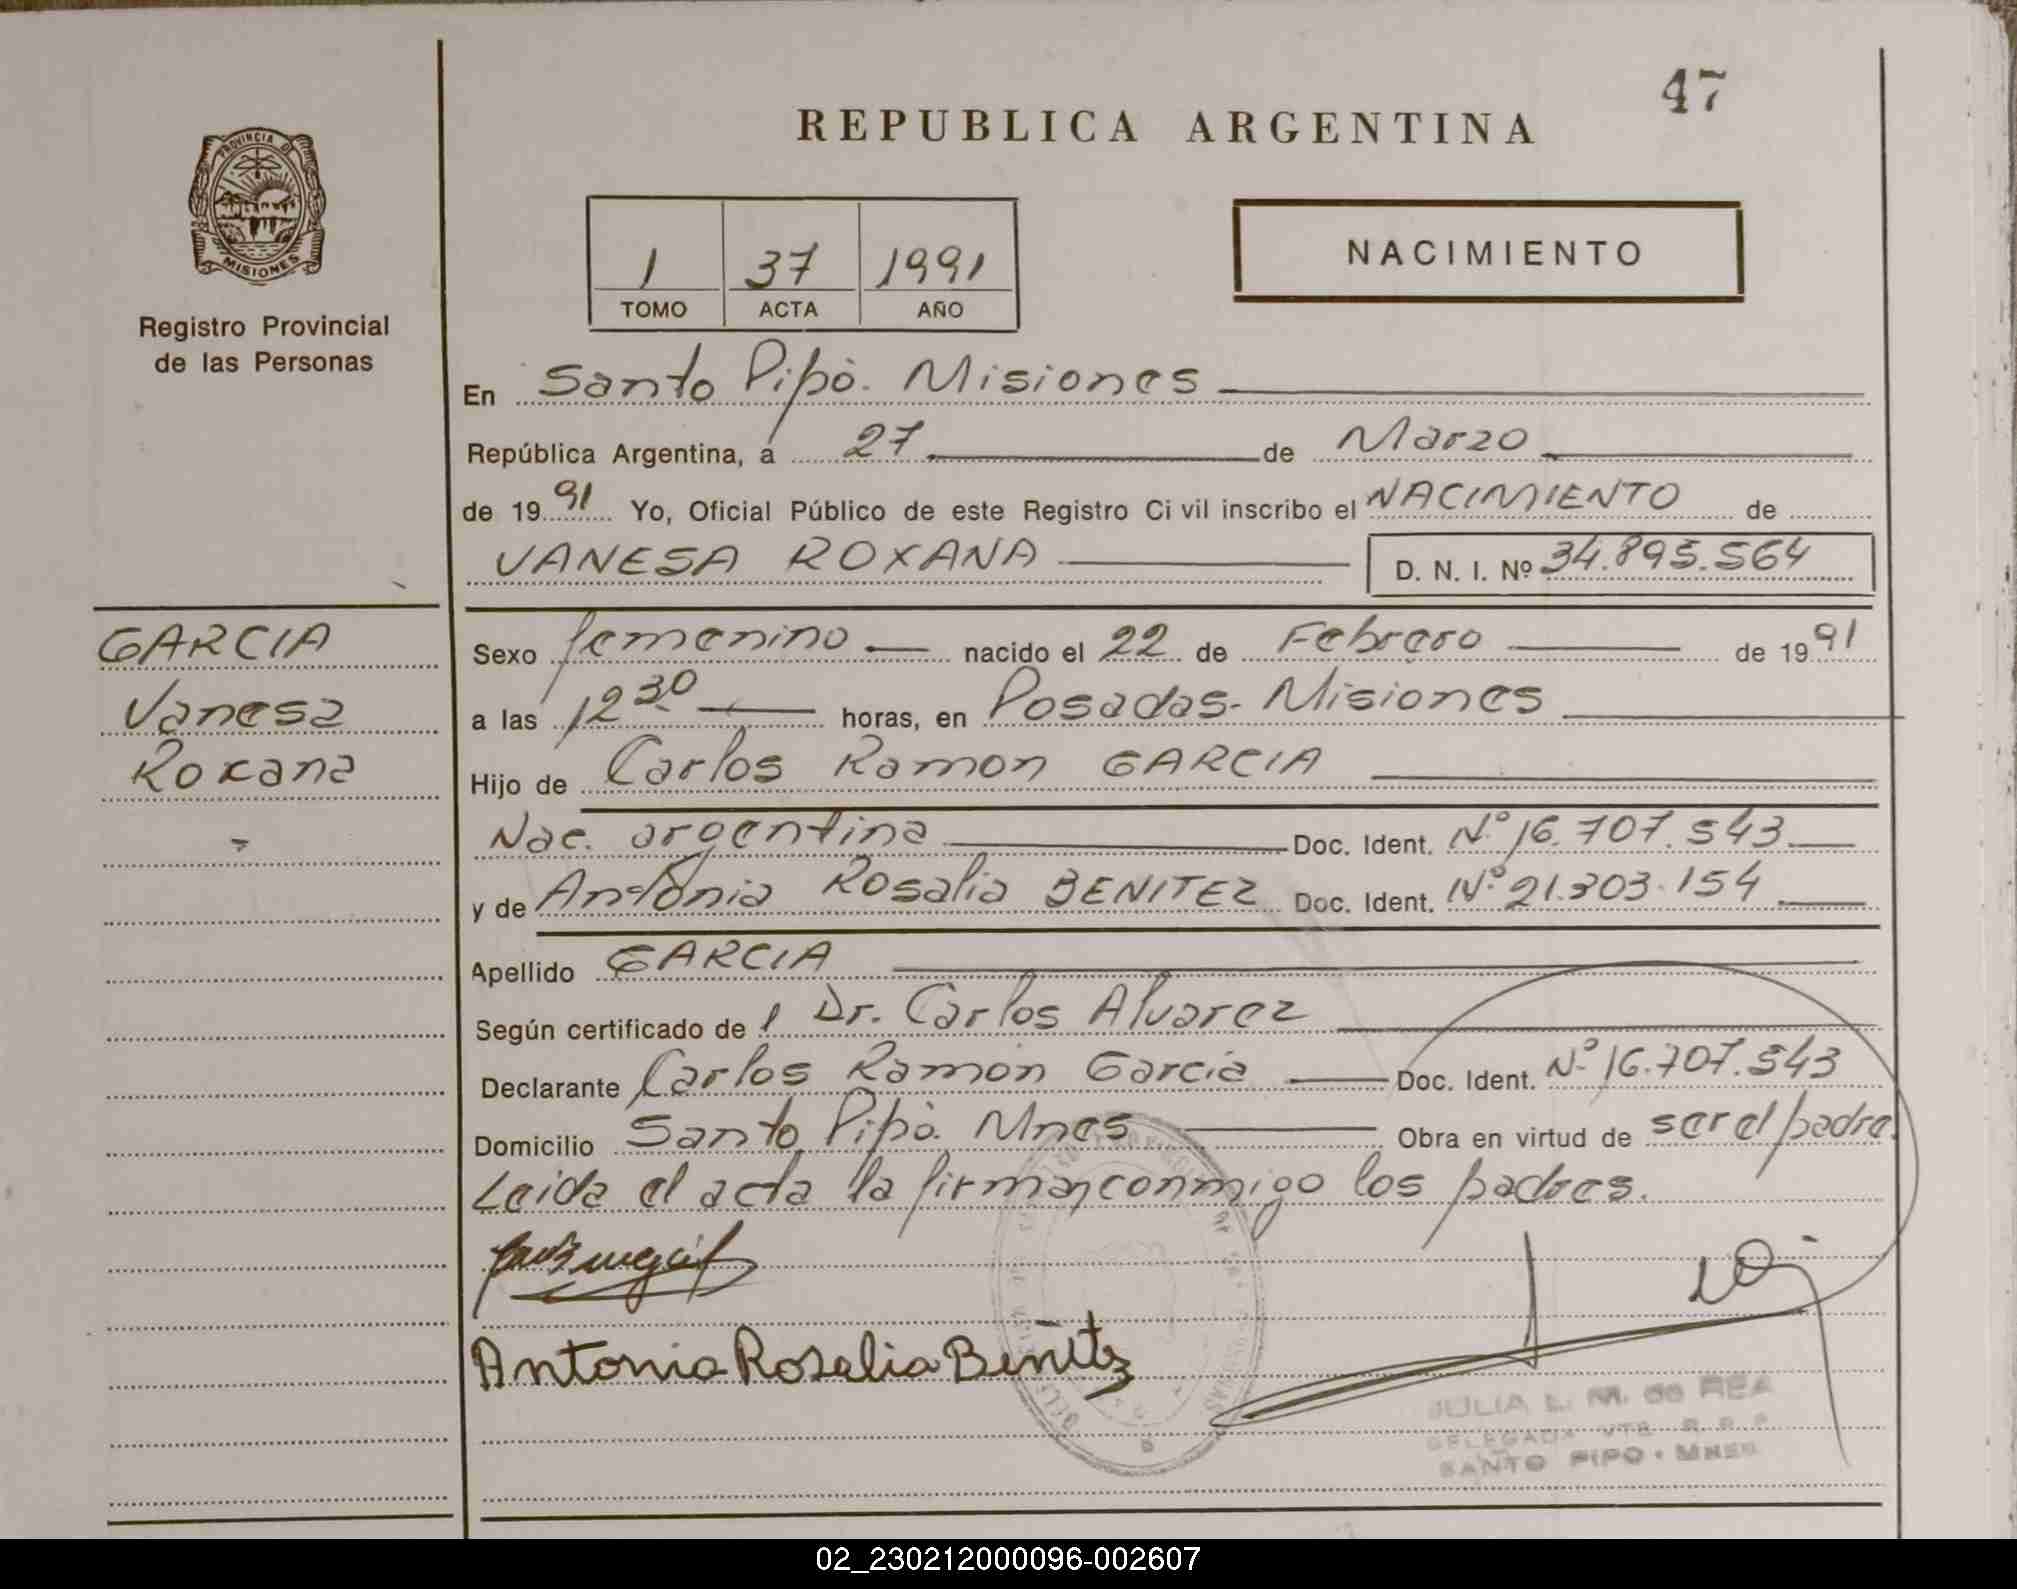 47
REPUBLICA ARGENTINA
PROVINCIA DE
MISIONES
Registro Provincial
de las Personas
1 37 1991
TOMO ACTA AÑO
NACIMIENTO
En Santo Pipó. Misiones
República Argentina, a 27 de Marzo
de 1991 Yo, Oficial Público de este Registro Ci vil inscribo el NACIMIENTO de
VANESA ROXANA D. N. I. Nº 34.895.564
GARCIA
Vanesa
Roxana
Sexo femenino nacido el 22 de Febrero de 1991
a las 12 30 horas, en Posadas- Misiones
Hijo de Carlos Ramon GARCIA
Nac. argentina Doc. Ident. Nº 16.707.543
y de Antonia Rosalia BENITEZ Doc. Ident. Nº 21.303.154
Apellido GARCIA
Según certificado de l Dr. Carlos Alvarez
Declarante Carlos Ramón Garcia Doc. Ident. Nº 16.707.543
Domicilio Santo Pipó. Mnes Obra en virtud de ser el padre.
Leida el acta la firman conmigo los padres.
Antonia Rosalia Benitez
JULIA L. M. de REA
DELEGADA R. P. P.
SANTO PIPO - MNES
02_230212000096-002607